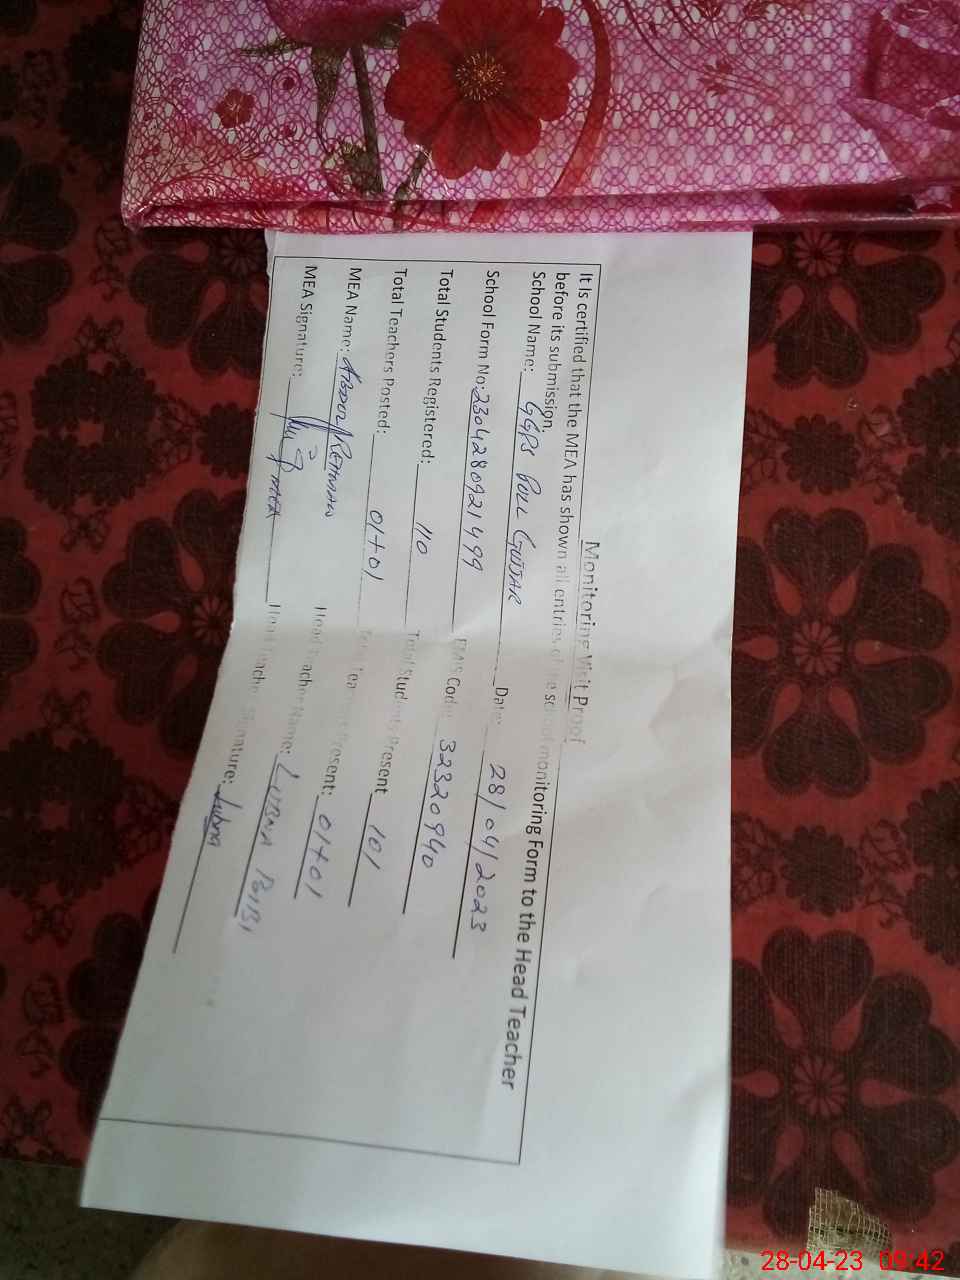 Monitoring Visit Proof
It Is certified that the MEA has shown all entries of the school monitoring Form to the Head Teacher
before its submission.
School Name: GGPS BULL GUJJAR Date: 28/04/2023
School Form No: 2304280921499 EMIS Code: 32320940
Total Students Registered: 110 Total Students Present 101
Total Teachers Posted: 01+01 Total Teachers Present: 01+01
MEA Name: ABDUL REHMAN Head Teacher Name: LUBNA BIBI
MEA Signature: MEA Head Teacher Signature: Lubna
28-04-23 09:42